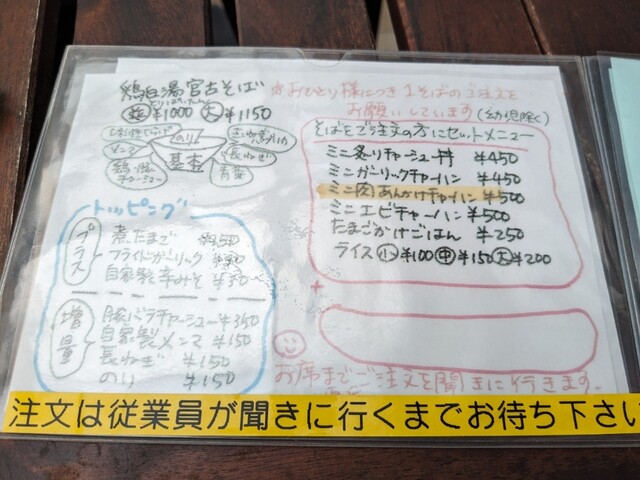 鶏白湯宮古そば
とりぱいたん
並 ¥1000 大 ¥1150
のり
基本
メンマ
鶏
チャーシュー
長ねぎ
青菜
トッピング
プラス
煮たまご
フライドガーリック
自家製辛みそ ¥50
増量
豚バラチャーシュー ¥350
自家製メンマ ¥150
長ねぎ ¥150
のり ¥150
☆おひとり様につき1そばのご注文を
お願いしています(幼児除く)
そばをご注文の方にセットメニュー
ミニ炙りチャーシュー丼 ¥450
ミニガーリックチャーハン ¥450
ミニ肉あんかけチャーハン ¥500
ミニエビチャーハン ¥500
たまごかけごはん ¥250
ライス 小 ¥100 中 ¥150 大 ¥200
+
お席までご注文を聞きに行きます。
注文は従業員が聞きに行くまでお待ち下さい